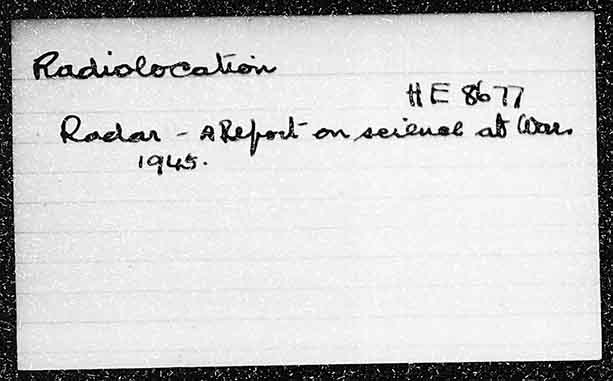 Radiolocation
HE 8677
Radar - A Report on science at War.
1945.